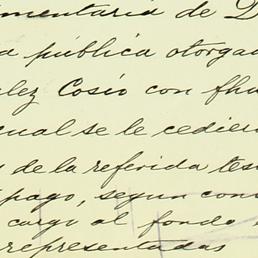 mentaria de D
a pública otorga
lez Cosío con fha
cual se le cedier
de la referida tes
pago, segun cons
cargo al fondo
representadas